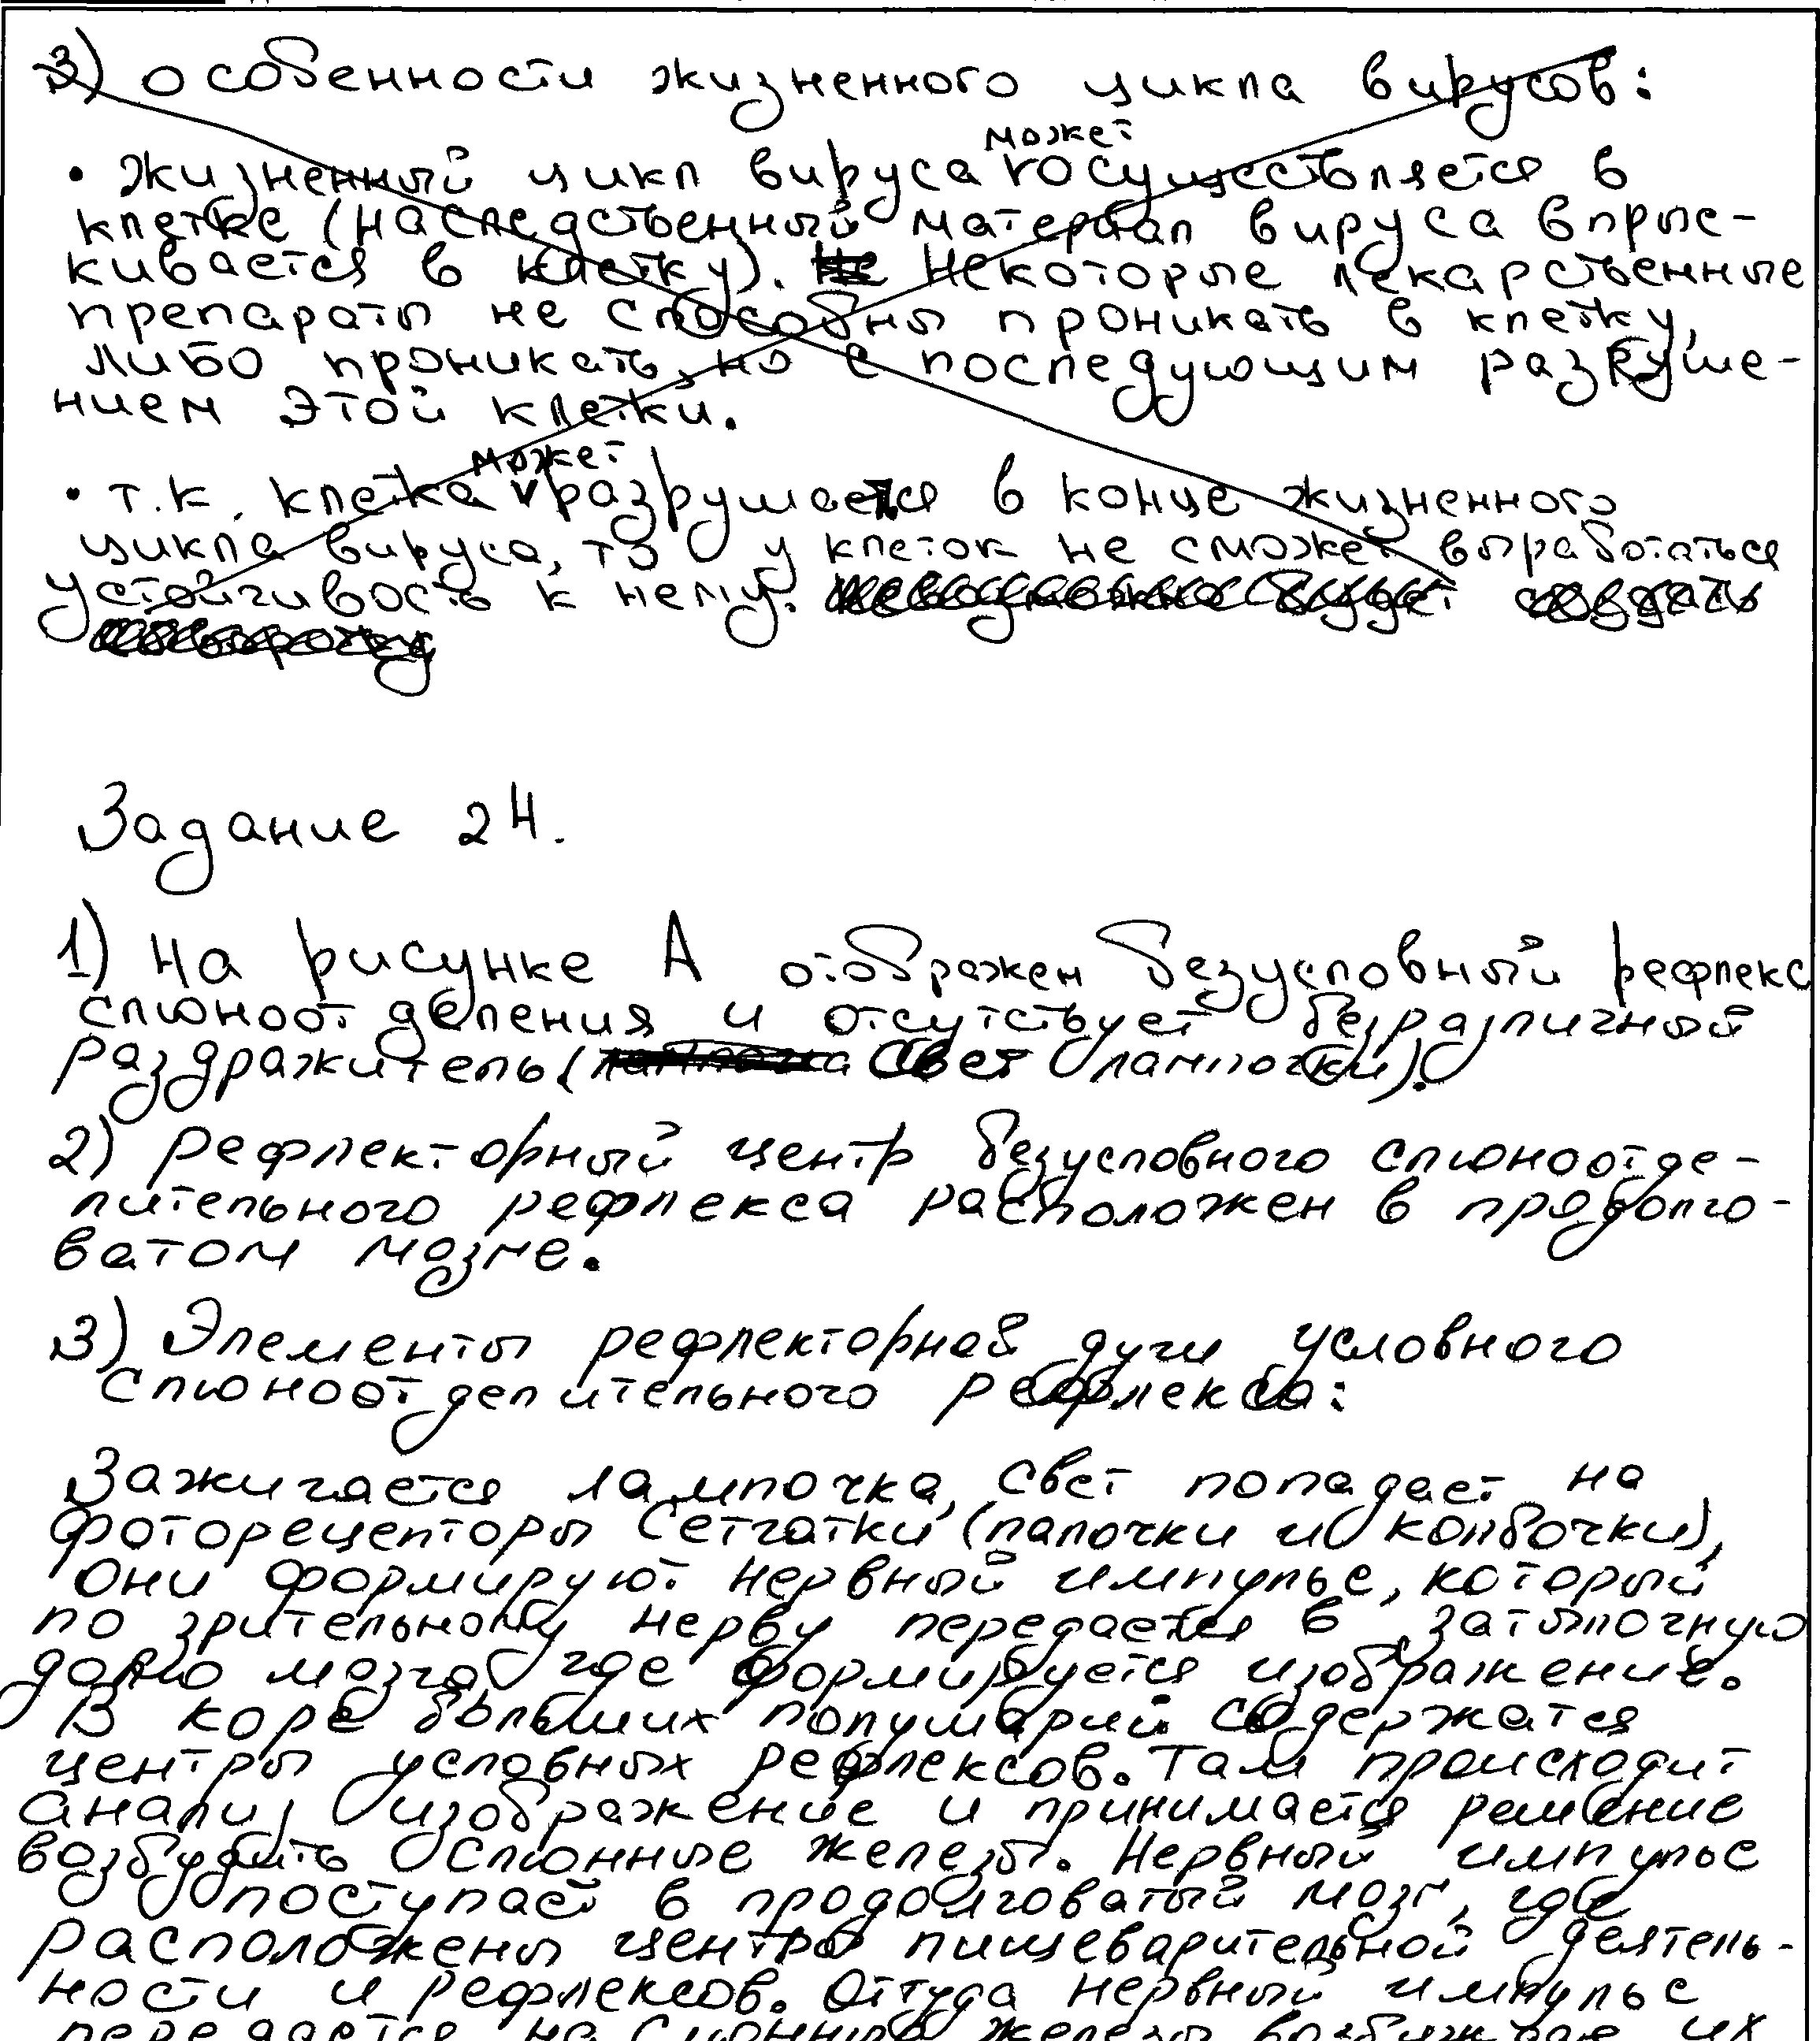 3) особенности жизненного цикла вирусов:
может
• жизненный цикл вируса √осуществляется в
клетке (наследственный материал вируса впрыс-
кивается в клетку). Не Некоторые лекарственные
препараты не способны проникать в клетку,
либо проникать, но с последующим разруше-
нием этой клетки.
может
• т.к. клетка √разрушаться в конце жизненного
цикла вируса, то у клеток не сможет выработаться
устойчивость к нему. невозможно будет создать
Задание 24.
1) На рисунке А отображен безусловный рефлекс
слюноотделения и отсутствует безразличный
раздражитель (лампочка свет лампочки).
2) Рефлекторный центр безусловного слюноотде-
лительного рефлекса расположен в продолго-
ватом мозге.
3) Элементы рефлекторной дуги условного
слюноотделительного рефлекса:
Зажигается лампочка, свет попадает на
фоторецепторы сетчатки (палочки и колбочки),
они формируют нервный импульс, который
по зрительному нерву передается в затылочную
долю мозга где формируется изображение.
В коре больших полушарий содержатся
центры условных рефлексов. Там происходит
анализ изображение и принимается решение
возбудить слюнные железы. Нервный импульс
поступает в продолговатый мозг, где
расположены центры пищеварительной деятель-
ности и рефлексов. Оттуда нервный импульс
передается на слюнные железы возбуждая их